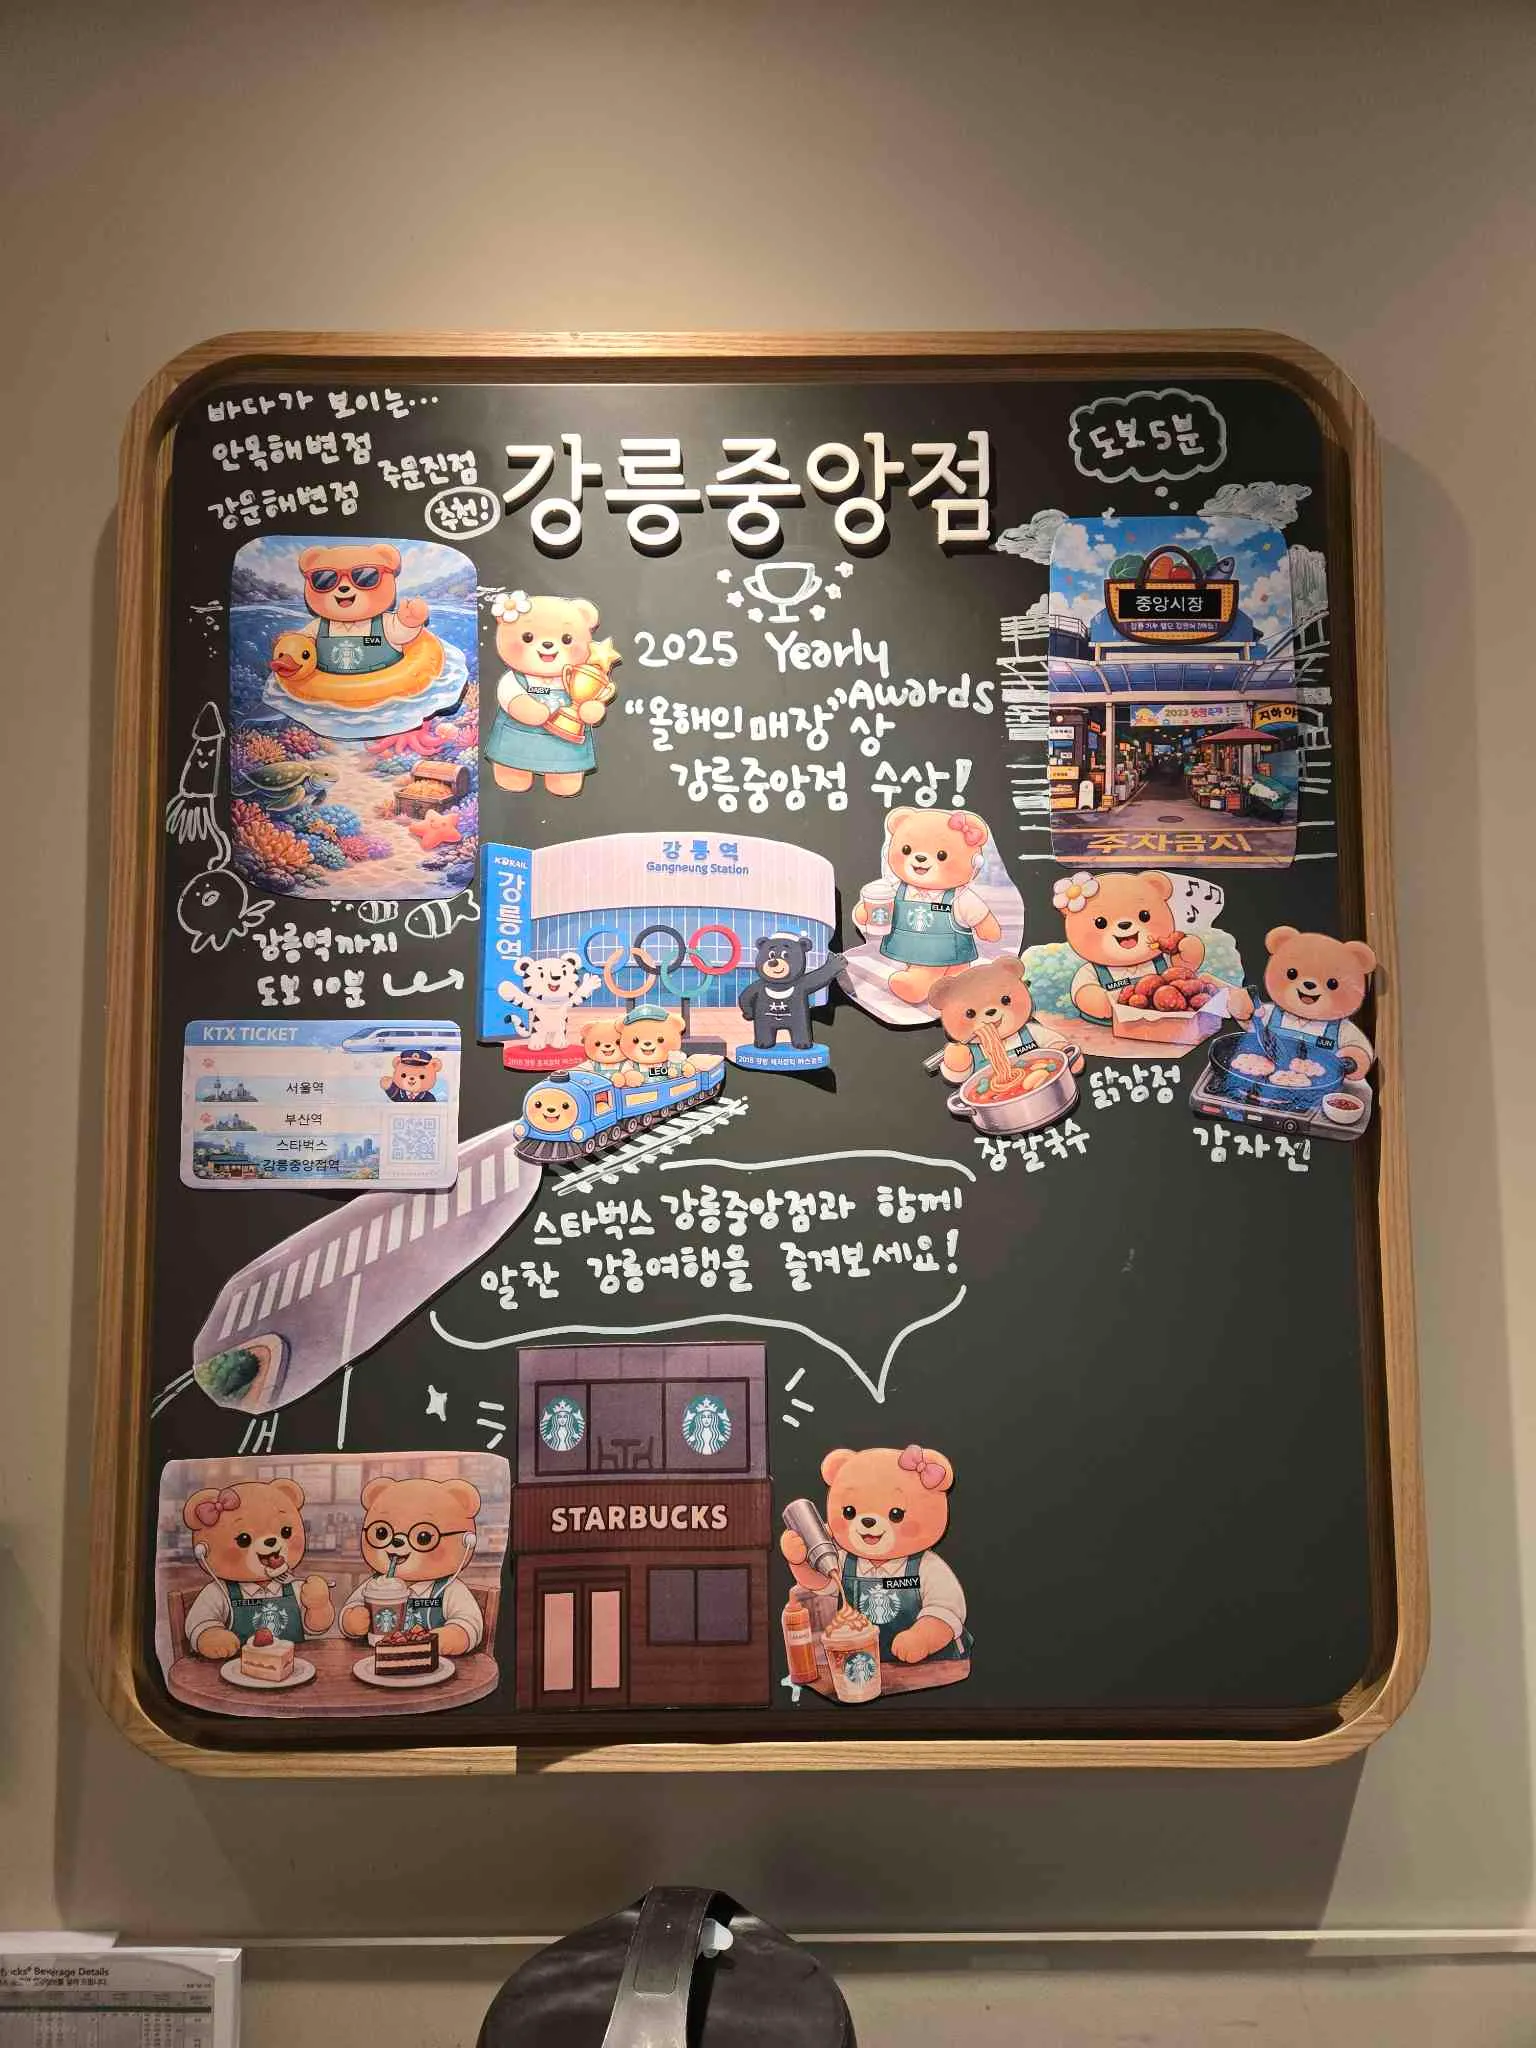 바다가 보이는...
안목해변점
주문진점
강문해변점
추천!
강릉중앙점
도보 5분
EVA
DAISY
2025 Yearly
Awards
"올해의 매장" 상
강릉중앙점 수상!
중앙시장
2023
지하
주차금지
KORAIL
강릉역
강릉역
Gangneung Station
ELLA
MARIE
HANA
JUN
LEO
강릉역까지
도보 10분
KTX TICKET
서울역
부산역
스타벅스
강릉중앙점역
닭강정
장칼국수
감자전
스타벅스 강릉중앙점과 함께
알찬 강릉여행을 즐겨보세요!
STARBUCKS
STELLA
STEVE
RANNY
Beverage Details